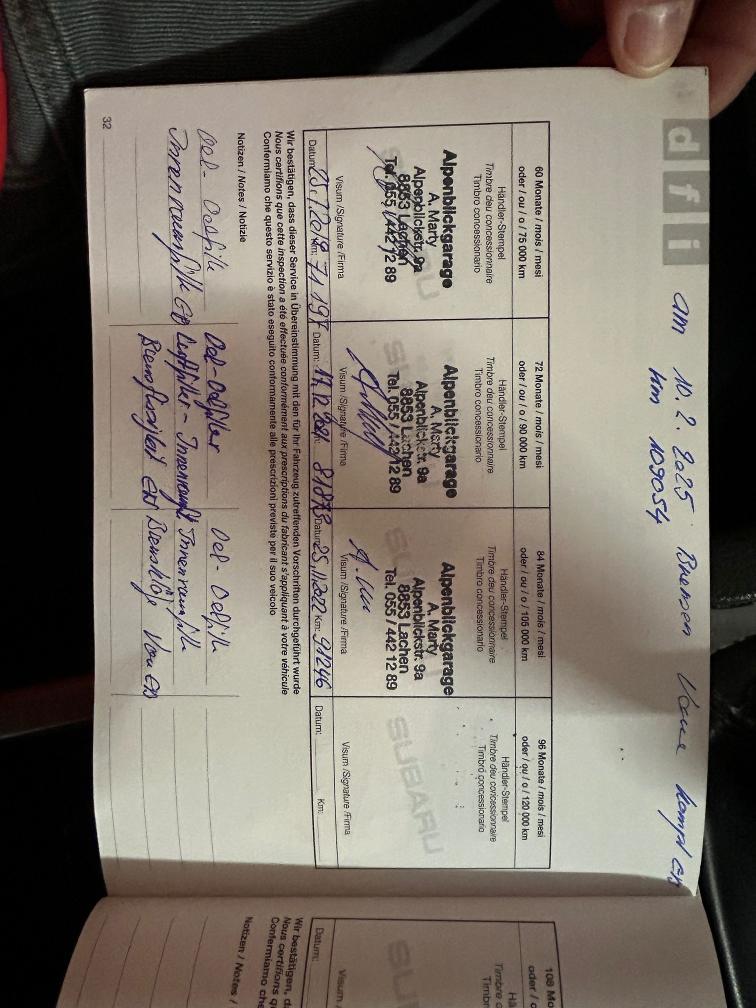 d f i
am 10. 2. 2025 Bremsen Vorne kompl
km 109054
60 Monate / mois / mesi
oder / ou / o / 75 000 km
Händler-Stempel
Timbre deu concessionnaire
Timbro concessionario
Alpenblickgarage
A. Marty
Alpenblickstr. 9a
8853 Lachen
Tel. 055 / 442 12 89
Visum /Signature /Firma
Datum: 25.7.2019 Km: 71197
72 Monate / mois / mesi
oder / ou / o / 90 000 km
Händler-Stempel
Timbre deu concessionnaire
Timbro concessionario
Alpenblickgarage
A. Marty
Alpenblickstr. 9a
8853 Lachen
Tel. 055 / 442 12 89
Visum /Signature /Firma
Datum: 17.12.2021 81873
84 Monate / mois / mesi
oder / ou / o / 105 000 km
Händler-Stempel
Timbre deu concessionnaire
Timbro concessionario
Alpenblickgarage
A. Marty
Alpenblickstr. 9a
8853 Lachen
Tel. 055 / 442 12 89
Visum /Signature /Firma
Datum: 25.11.2022 Km: 91246
96 Monate / mois / mesi
oder / ou / o / 120 000 km
Händler-Stempel
Timbre deu concessionnaire
Timbro concessionario
SUBARU
Visum /Signature /Firma
Datum: Km:
Wir bestätigen, dass dieser Service in Übereinstimmung mit den für Ihr Fahrzeug zutreffenden Vorschriften durchgeführt wurde
Nous certifions que cette inspection a été effectuée conformément aux prescriptions du fabricant s'appliquant à votre véhicule
Confermiamo che questo servizio è stato eseguito conformamente alle prescrizioni previste per il suo veicolo
Notizen / Notes / Notizie
Oel- Oelfilter
Innenraumfilter
Oel- Oelfilter
Luftfilter - Innenraumf
Bremsflüssigkeit
Oel- Oelfilter
Innenraumfilter
Bremsklötze Vorn
32
108 Mo
oder / o
Hä
Timbre d
Timbr
SU
Visum
Datum:
Wir bestätigen, d
Nous certifions q
Confermiamo ch
Notizen / Notes /